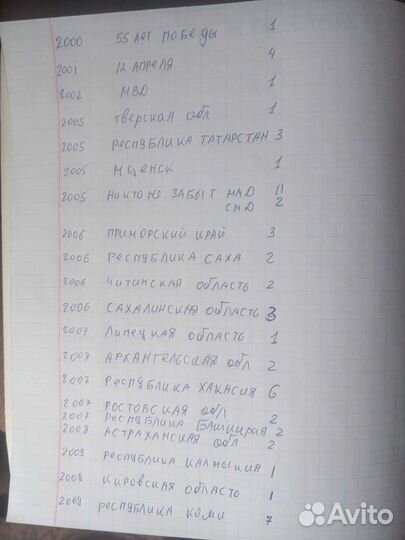 2000 55 лет ПОБЕДЫ 1
2001 12 АПРЕЛЯ 4
2002 МВД 1
2005 ТВЕРСКАЯ ОБЛ 1
2005 РЕСПУБЛИКА ТАТАРСТАН 3
2005 Мценск 1
2005 НИКТО НЕ ЗАБЫТ ММД 11
СМД 2
2006 ПРИМОРСКИЙ КРАЙ 3
2006 РЕСПУБЛИКА САХА 2
2006 ЧИТИНСКАЯ ОБЛАСТЬ 2
2006 САХАЛИНСКАЯ ОБЛАСТЬ 3
2007 Липецкая ОБЛАСТЬ 1
2007 АРХАНГЕЛЬСКАЯ ОБЛ 2
2007 РЕСПУБЛИКА ХАКАСИЯ 6
2007 РОСТОВСКАЯ ОБЛ 2
2007 РЕСПУБЛИКА БАШКИРИЯ 2
2008 АСТРАХАНСКАЯ ОБЛ 2
2009 РЕСПУБЛИКА КАЛМЫКИЯ 1
2009 КИРОВСКАЯ ОБЛАСТЬ 1
2009 РЕСПУБЛИКА КОМИ 7
Avito